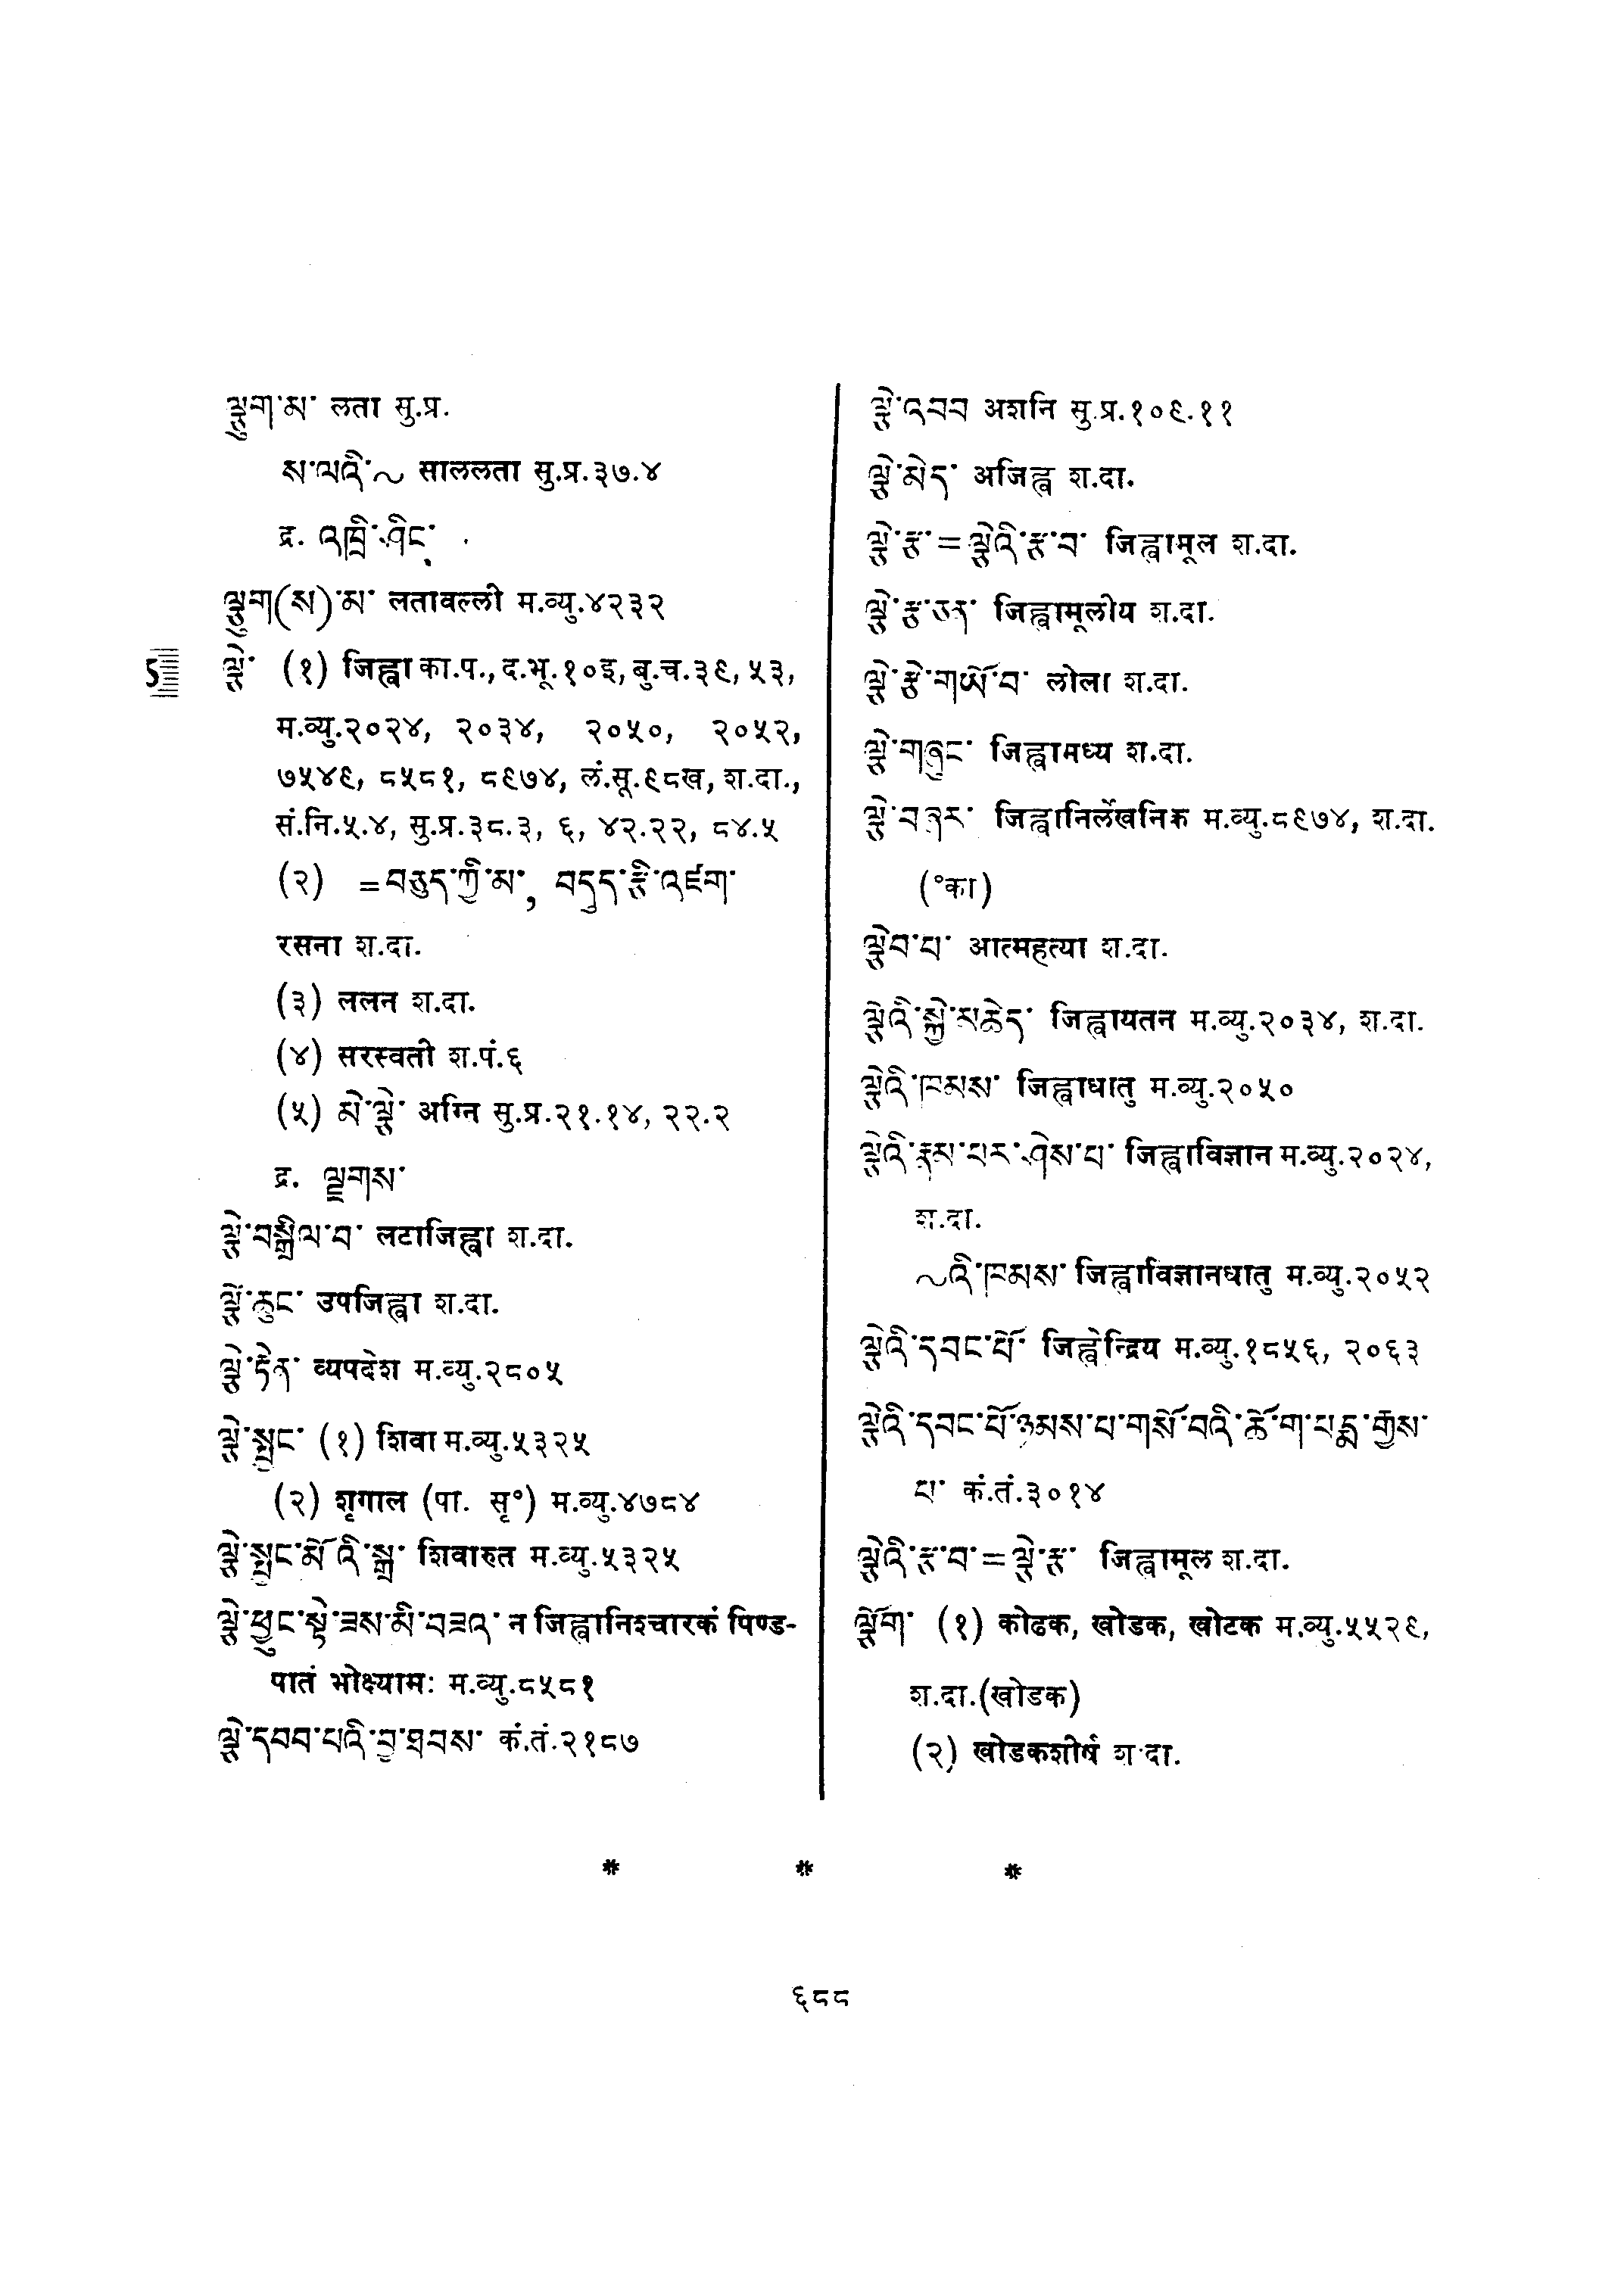 ལྕུག་མ་ लता सु.प्र.
ས་ལའི་～ साललता सु.प्र.३७.४
द्र. འཁྲི་ཤིང་
ལྕུག(ས)་མ་ लतावल्ली म.व्यु.४२३२
ལྕེ་ (१) जिह्वा का.प., द.भू.१०इ, बु.च.३९, ५३,
म.व्यु.२०२४, २०३४, २०५०, २०५२,
७५४९, ८५८१, ८९७४, लं.सू.९८ख, श.दा.,
सं.नि.५.४, सु.प्र.३८.३, ६, ४२.२२, ८४.५
(२) =བཅུད་ཀྱི་མ་, བདུད་རྩི་འཛག་
रसना श.दा.
(३) ललन श.दा.
(४) सरस्वती श.पं.६
(५) མེ་ལྕེ་ अग्नि सु.प्र.२१.१४, २२.२
द्र. ལྗགས་
ལྕེ་བསྒྲིལ་བ་ लटाजिह्वा श.दा.
ལྕེ་ཆུང་ उपजिह्वा श.दा.
ལྕེ་རྟེན་ व्यपदेश म.व्यु.२८०५
ལྕེ་སྤྱང་ (१) शिवा म.व्यु.५३२५
(२) शृगाल (पा. सृ॰) म.व्यु.४७८४
ལྕེ་སྤྱང་མོའི་སྒྲ་ शिवारुत म.व्यु.५३२५
ལྕེ་ཕྱུང་སྟེ་ཟས་མི་བཟའ་ न जिह्वानिश्चारकं पिण्ड-
पातं भोक्ष्यामः म.व्यु.८५८१
ལྕེ་དབབ་པའི་བྱ་ཐབས་ कं.तं.२१८७
ལྕེ་འབབ अशनि सु.प्र.१०९.११
ལྕེ་མེད་ अजिह्व श.दा.
ལྕེ་རྩ་=ལྕེའི་རྩ་བ་ जिह्वामूल श.दा.
ལྕེ་རྩ་ཅན་ जिह्वामूलीय श.दा.
ལྕེ་རྩེ་གཡོ་བ་ लोला श.दा.
ལྕེ་གཞུང་ जिह्वामध्य श.दा.
ལྕེ་བཞར་ जिह्वानिर्लेखनिक म.व्यु.८९७४, श.दा.
(॰का)
ལྕེབ་པ་ आत्महत्या श.दा.
ལྕེའི་སྐྱེ་མཆེད་ जिह्वायतन म.व्यु.२०३४, श.दा.
ལྕེའི་ཁམས་ जिह्वाधातु म.व्यु.२०५०
ལྕེའི་རྣམ་པར་ཤེས་པ་ जिह्वाविज्ञान म.व्यु.२०२४,
श.दा.
～འི་ཁམས་ जिह्वाविज्ञानधातु म.व्यु.२०५२
ལྕེའི་དབང་པོ་ जिह्वेन्द्रिय म.व्यु.१८५६, २०६३
ལྕེའི་དབང་པོ་ཉམས་པ་གསོ་བའི་ཆོ་ག་པདྨ་རྒྱས་
པ་ कं.तं.३०१४
ལྕེའི་རྩ་བ་=ལྕེ་རྩ་ जिह्वामूल श.दा.
ལྕོག་ (१) कोढक, खोडक, खोटक म.व्यु.५५२९,
श.दा.(खोडक)
(२) खोडकशीर्षं श.दा.
* * *
६८८